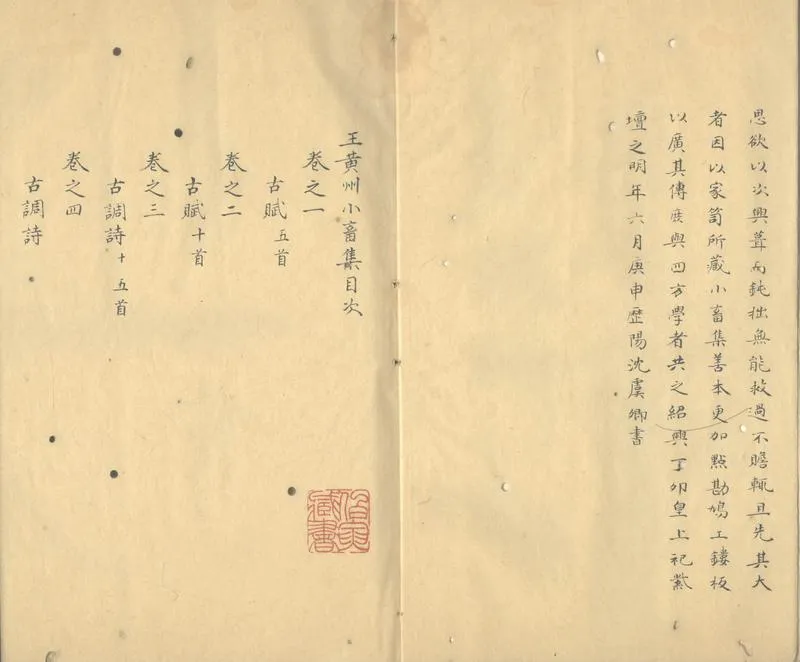 思欲以次興葺而鈍拙無能救過不贍輒且先其大
者因以家笥所藏小畜集善本更加點勘鳩工鏤板
以廣其傳庶與四方學者共之紹興丁卯皇上祀紫
壇之明年六月庚申歷陽沈虞卿書
王黃州小畜集目次
卷之一
古賦五首
卷之二
古賦十首
卷之三
古調詩十五首
卷之四
古調詩
藏書